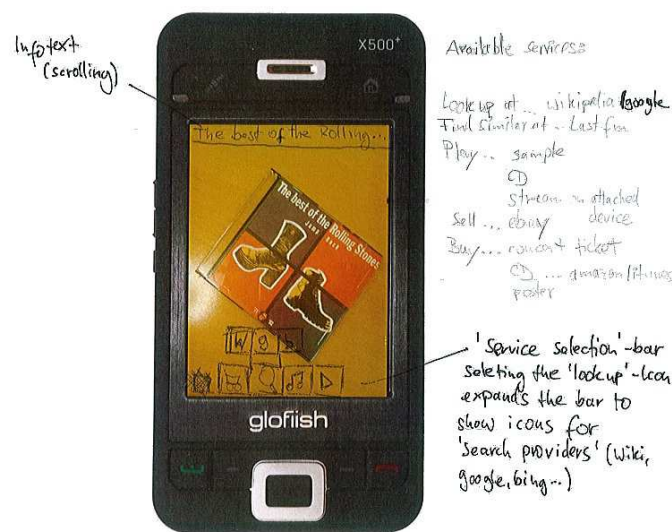 Infotext
(scrolling)
X500+
The best of the Rolling...
The best of the Rolling Stones
W g b
glofiish
Available services:
Look up at ... wikipedia / google
Find similar at ... Last fm
Play ... sample
CD
stream attached
device
Sell ... ebay
Buy ... concert ticket
CD ... amazon/itunes
poster
'Service selection'-bar
seleting the 'lookup'-Icon
expands the bar to
show icons for
'search providers' (Wiki,
google, bing...)